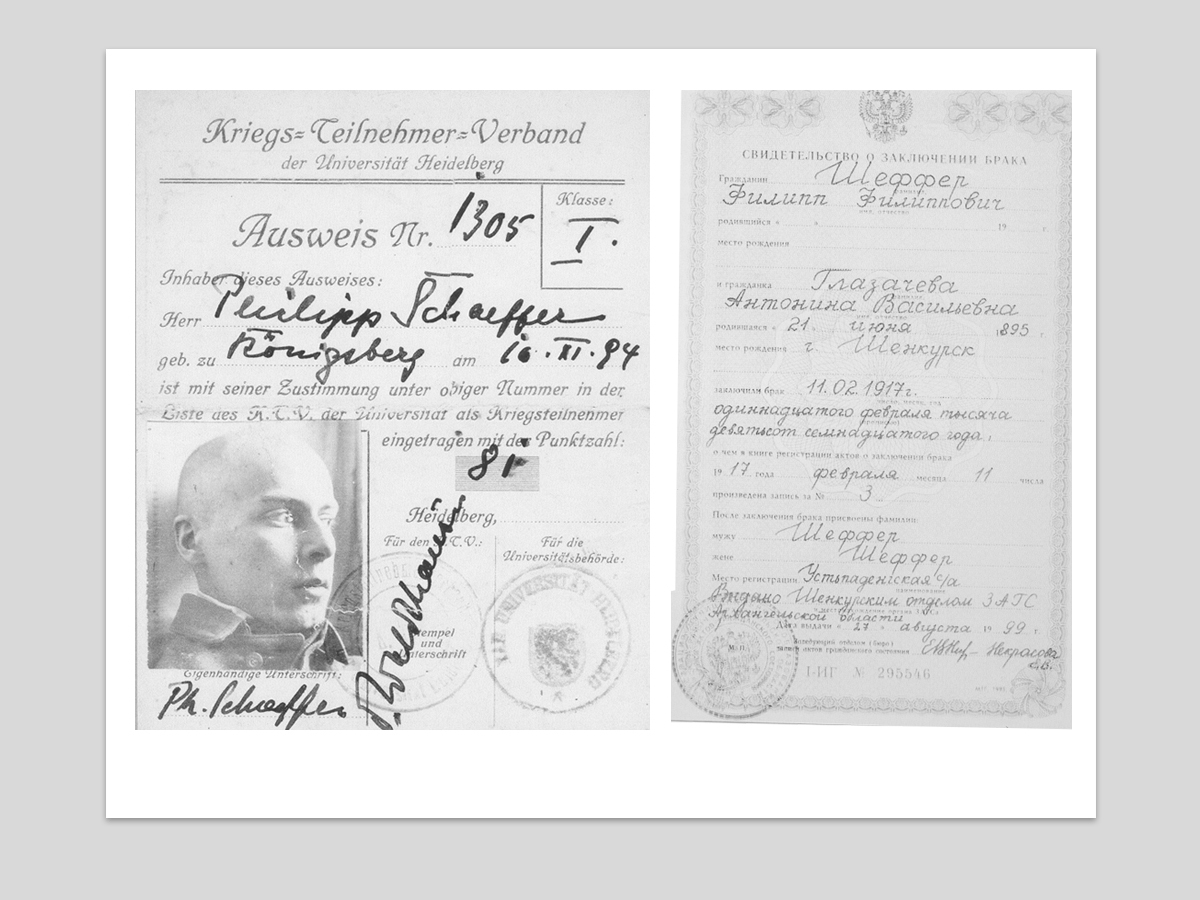 Kriegs=Teilnehmer=Verband
der Universität Heidelberg
Klasse:
I.
Ausweis Nr. 1305
Inhaber dieses Ausweises:
Herr Philipp Schaeffer
geb. zu Königsberg am 16. XI. 94
ist mit seiner Zustimmung unter obiger Nummer in der
Liste des K.T.V. der Universität als Kriegsteilnehmer
eingetragen mit der Punktzahl:
81
Heidelberg,
Für den K.T.V.:
Für die
Universitätsbehörde:
Stempel
und
Unterschrift
Eigenhändige Unterschrift:
Ph. Schaeffer
СВИДЕТЕЛЬСТВО О ЗАКЛЮЧЕНИИ БРАКА
Гражданин Шеффер
Филипп Филиппович
родившийся « »
19 г.
место рождения
и гражданка Глазачева
Антонина Васильевна
родившаяся « 21 » июня 1895 г.
место рождения г. Шенкурск
заключили брак 11.02.1917г.
одиннадцатого февраля тысяча
девятьсот семнадцатого года,
о чем в книге регистрации актов о заключении брака
1917 года февраля месяца 11 числа
произведена запись за № 3
После заключения брака присвоены фамилии:
мужу Шеффер
жене Шеффер
Место регистрации Устьпаденгская с/а
Выдано Шенкурским отделом ЗАГС
Архангельской области
Дата выдачи « 27 » августа 1999 г.
М.П.
Заведующий отделом (бюро)
записи актов гражданского состояния Некрасова
I-ИГ № 295546